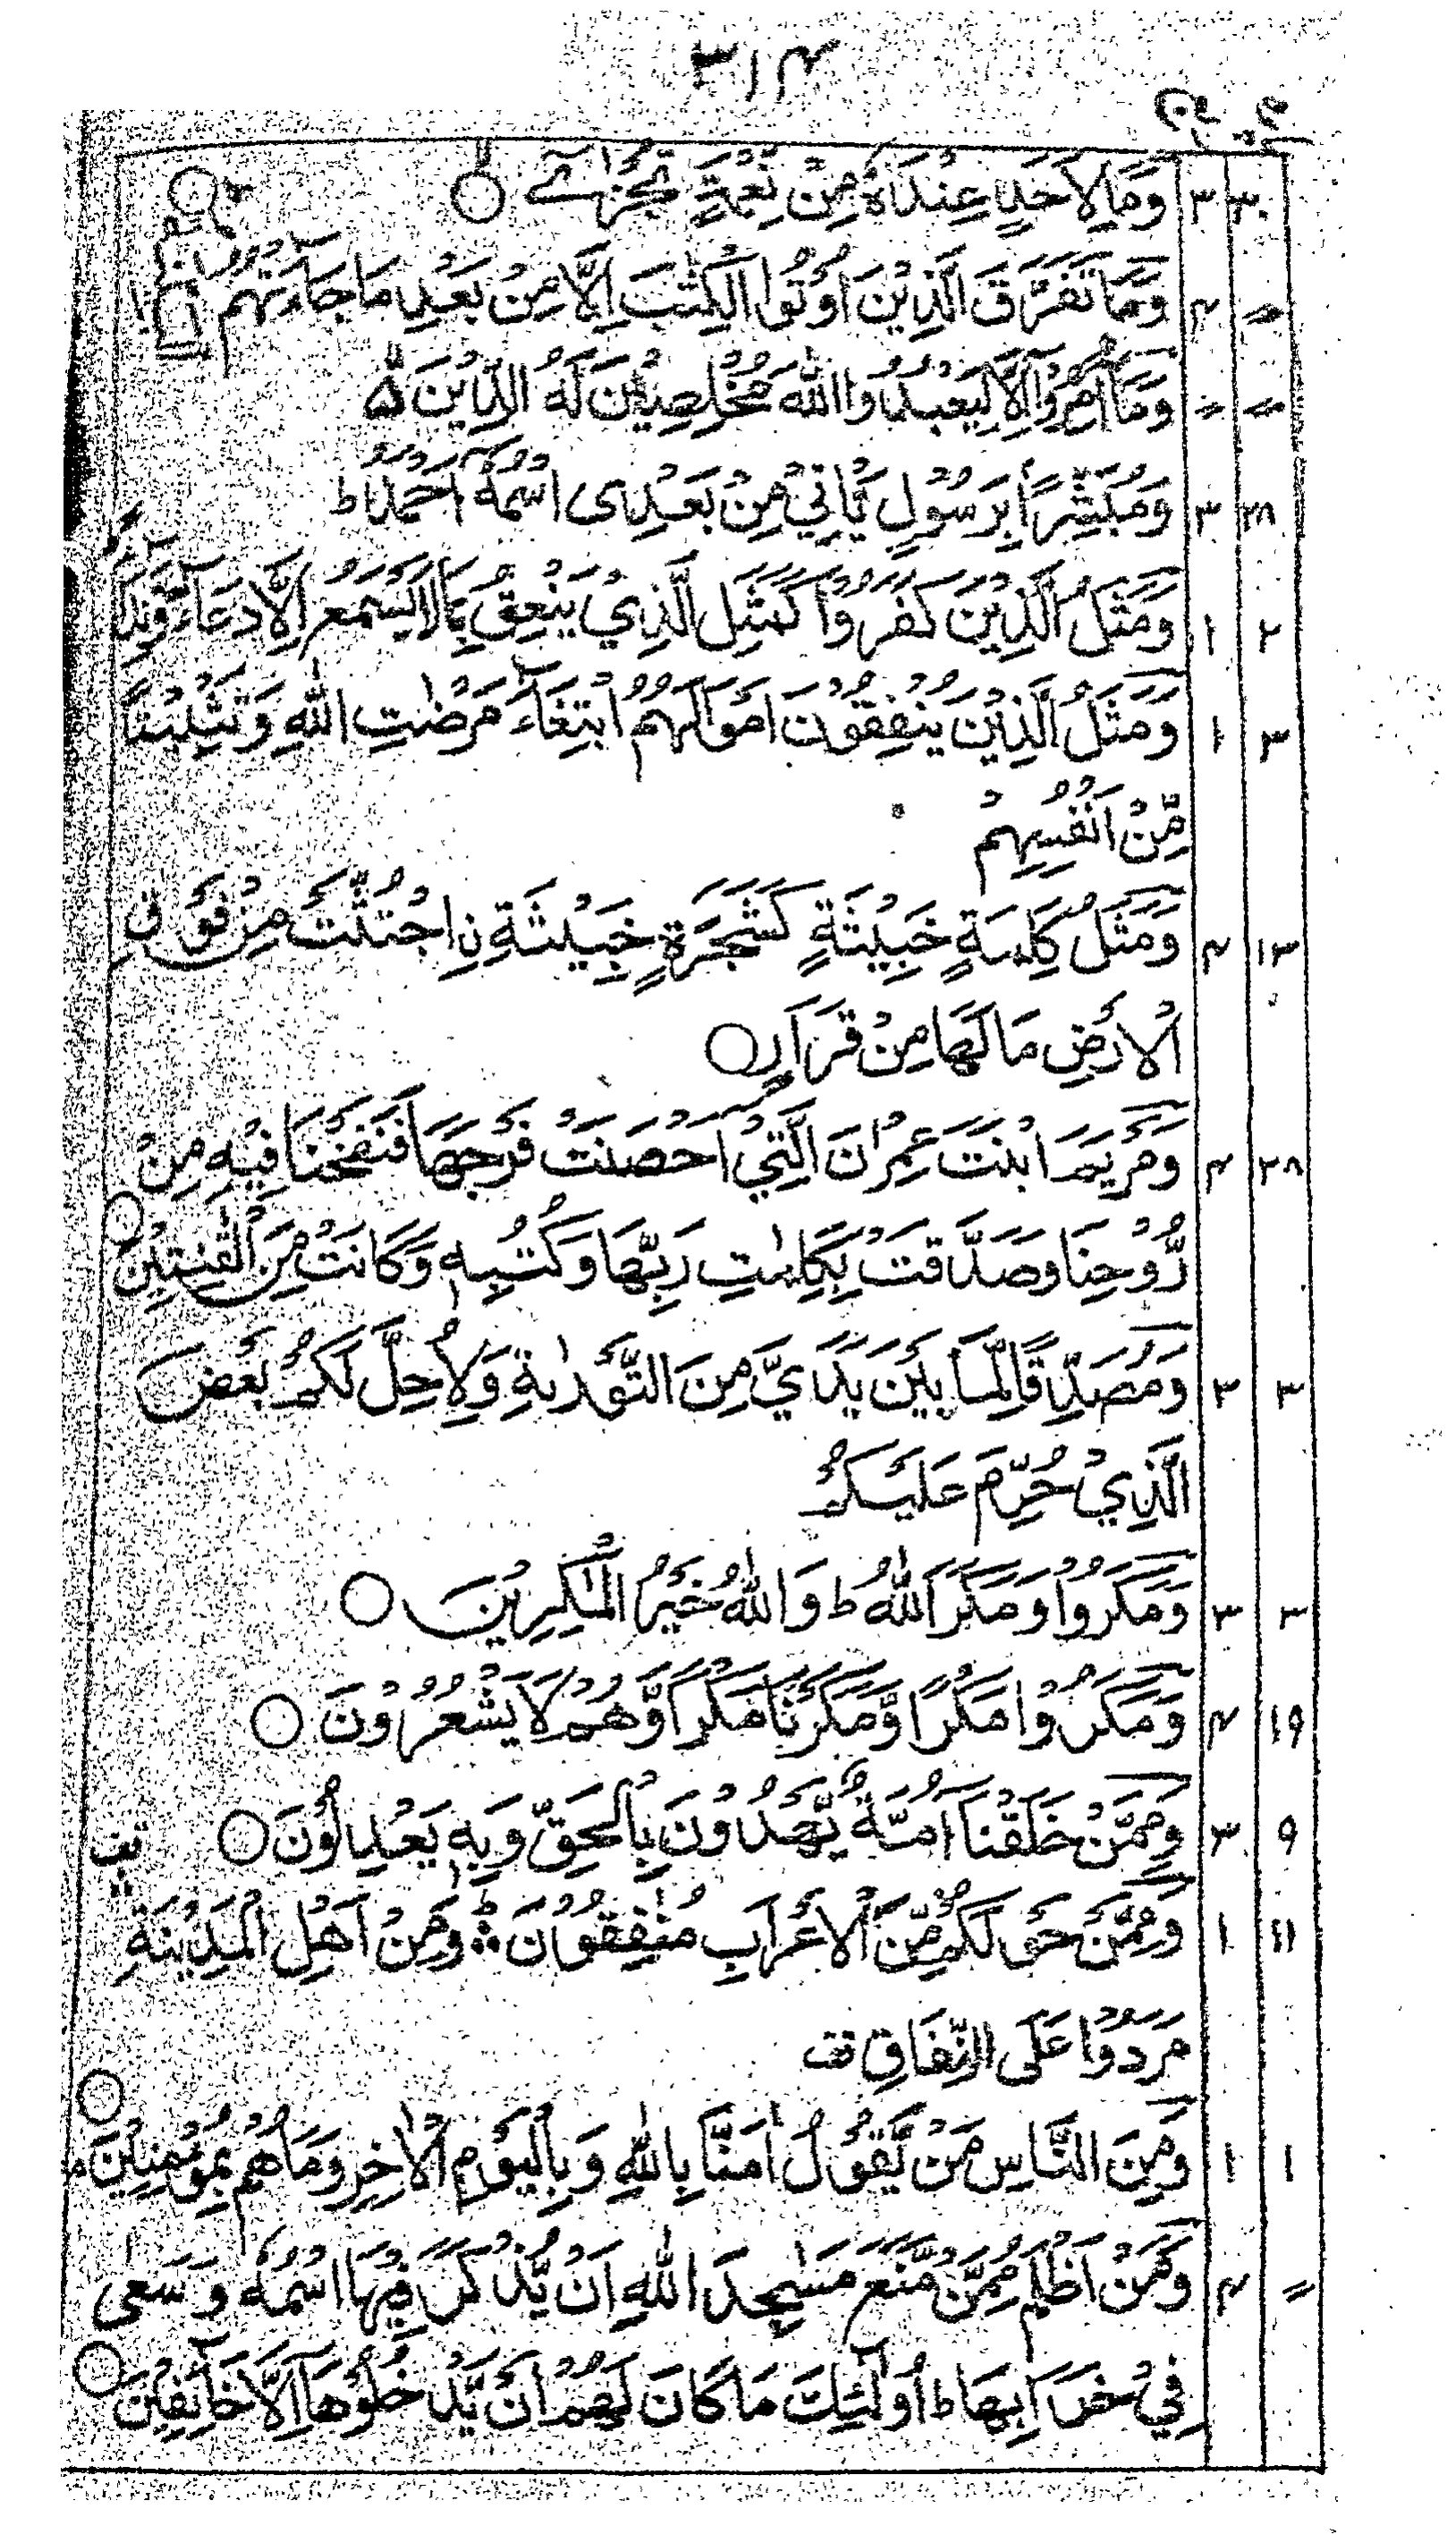 ۳۱۴
۳۰ ۳ وَمَا لِاَحَدٍ عِنْدَهٗ مِنْ نِّعْمَةٍ تُجْزٰٓى ○
〃 ۴ وَمَا تَفَرَّقَ الَّذِيْنَ اُوْتُوا الْكِتٰبَ اِلَّا مِنْۢ بَعْدِ مَا جَآءَتْهُمُ
〃 〃 وَمَآ اُمِرُوْٓا اِلَّا لِيَعْبُدُوا اللّٰهَ مُخْلِصِيْنَ لَهُ الدِّيْنَ
۲۸ ۳ وَمُبَشِّرًۢا بِرَسُوْلٍ يَّاْتِيْ مِنْۢ بَعْدِى اسْمُهٗٓ اَحْمَدُ ط
۲ ۱ وَمَثَلُ الَّذِيْنَ كَفَرُوْا كَمَثَلِ الَّذِيْ يَنْعِقُ بِمَا لَا يَسْمَعُ اِلَّا دُعَآءً وَّنِدَآءً
۳ ۱ وَمَثَلُ الَّذِيْنَ يُنْفِقُوْنَ اَمْوَالَهُمُ ابْتِغَآءَ مَرْضَاتِ اللّٰهِ وَتَثْبِيْتًا
مِّنْ اَنْفُسِهِمْ
۱۳ ۴ وَمَثَلُ كَلِمَةٍ خَبِيْثَةٍ كَشَجَرَةٍ خَبِيْثَةِ ِۨاجْتُثَّتْ مِنْ فَوْقِ
الْاَرْضِ مَا لَهَا مِنْ قَرَارٍ ○
۲۸ ۴ وَمَرْيَمَ ابْنَتَ عِمْرٰنَ الَّتِيْٓ اَحْصَنَتْ فَرْجَهَا فَنَفَخْنَا فِيْهِ مِنْ
رُّوْحِنَا وَصَدَّقَتْ بِكَلِمٰتِ رَبِّهَا وَكُتُبِهٖ وَكَانَتْ مِنَ الْقٰنِتِيْنَ ○
۳ ۳ وَمُصَدِّقًا لِّمَا بَيْنَ يَدَيَّ مِنَ التَّوْرٰىةِ وَلِاُحِلَّ لَكُمْ بَعْضَ
الَّذِيْ حُرِّمَ عَلَيْكُمْ
۳ ۳ وَمَكَرُوْا وَمَكَرَ اللّٰهُ ط وَاللّٰهُ خَيْرُ الْمٰكِرِيْنَ ○
۱۹ ۴ وَمَكَرُوْا مَكْرًا وَّمَكَرْنَا مَكْرًا وَّهُمْ لَا يَشْعُرُوْنَ ○
۹ ۳ وَمِمَّنْ خَلَقْنَآ اُمَّةٌ يَّهْدُوْنَ بِالْحَقِّ وَبِهٖ يَعْدِلُوْنَ ○
۱۱ ۱ وَمِمَّنْ حَوْلَكُمْ مِّنَ الْاَعْرَابِ مُنٰفِقُوْنَ ؕۛ وَمِنْ اَهْلِ الْمَدِيْنَةِ
مَرَدُوْا عَلَى النِّفَاقِ
۱ ۱ وَمِنَ النَّاسِ مَنْ يَّقُوْلُ اٰمَنَّا بِاللّٰهِ وَبِالْيَوْمِ الْاٰخِرِ وَمَا هُمْ بِمُؤْمِنِيْنَ ○
〃 ۴ وَمَنْ اَظْلَمُ مِمَّنْ مَّنَعَ مَسٰجِدَ اللّٰهِ اَنْ يُّذْكَرَ فِيْهَا اسْمُهٗ وَسَعٰى
فِيْ خَرَابِهَا ط اُولٰٓئِكَ مَا كَانَ لَهُمْ اَنْ يَّدْخُلُوْهَآ اِلَّا خَآئِفِيْنَ ○